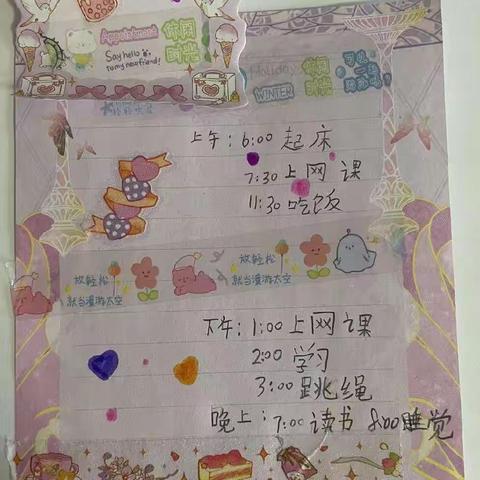 Appointment
你闲
时光
Say hello
to my new friend!
Holiday
WINTER
你闲
时光
上午：6:00 起床
7:30 上网课
11:30 吃饭
放轻松
就当漫游太空
放轻松
就当漫游太空
下午：1:00 上网课
2:00 学习
3:00 跳绳
晚上：7:00 读书 8:00 睡觉